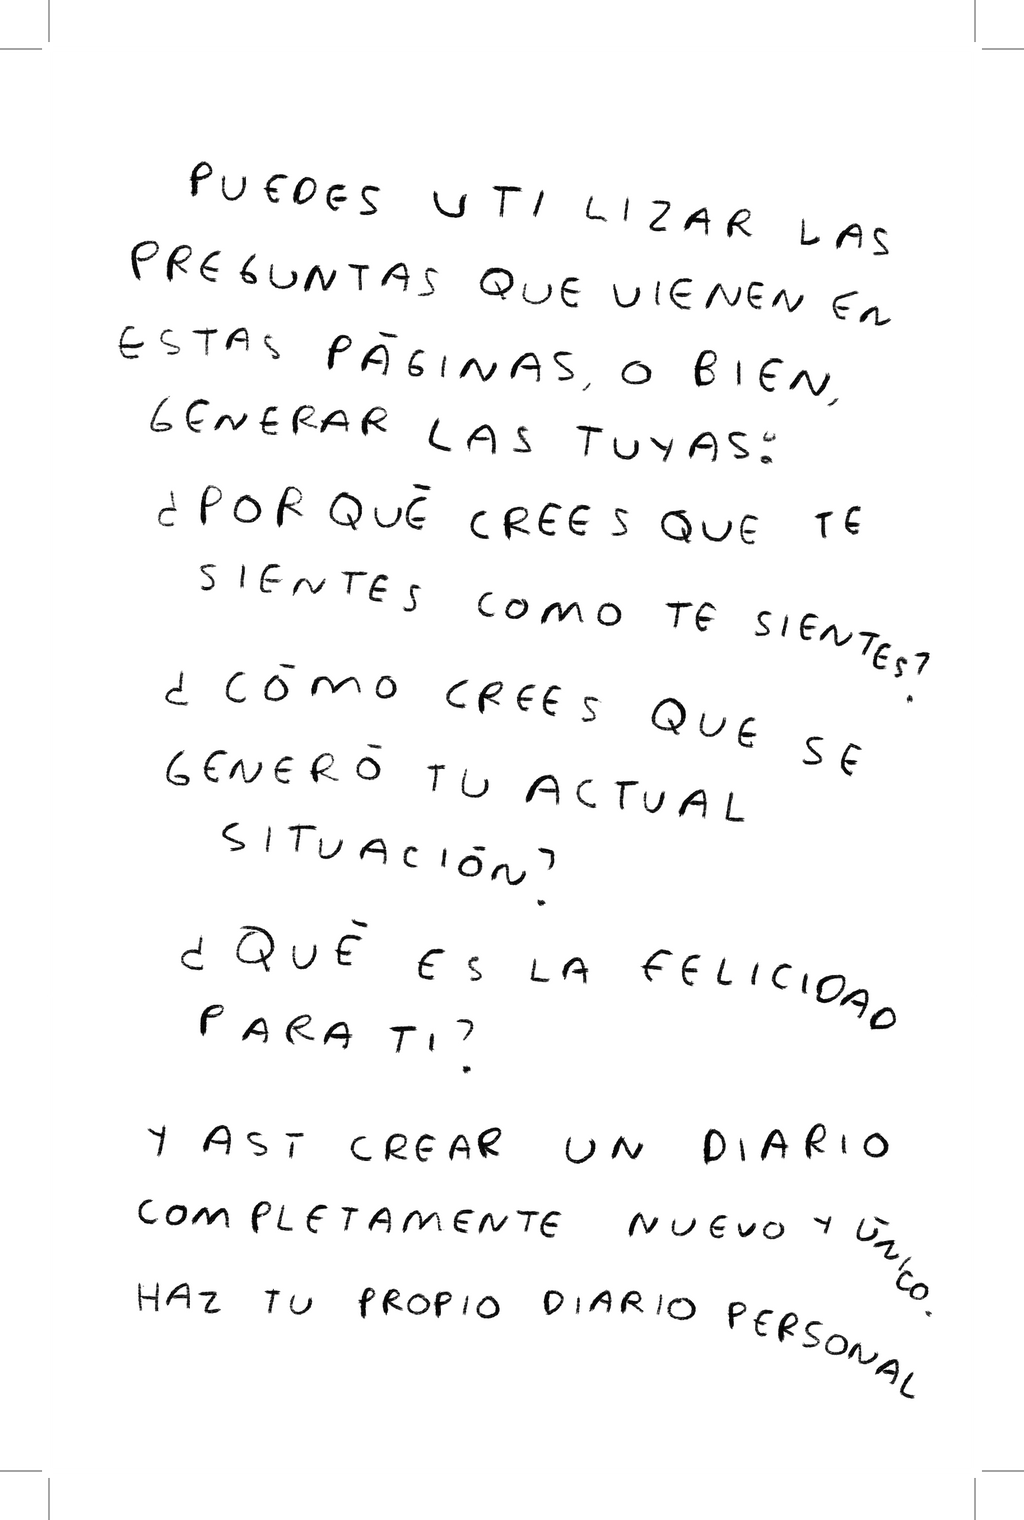 PUEDES UTILIZAR LAS
PREGUNTAS QUE VIENEN EN
ESTAS PÁGINAS, O BIEN,
GENERAR LAS TUYAS:
¿POR QUÉ CREES QUE TE
SIENTES COMO TE SIENTES?
¿CÓMO CREES QUE SE
GENERÓ TU ACTUAL
SITUACIÓN?
¿QUÉ ES LA FELICIDAD
PARA TI?
Y ASÍ CREAR UN DIARIO
COMPLETAMENTE NUEVO Y ÚNICO.
HAZ TU PROPIO DIARIO PERSONAL